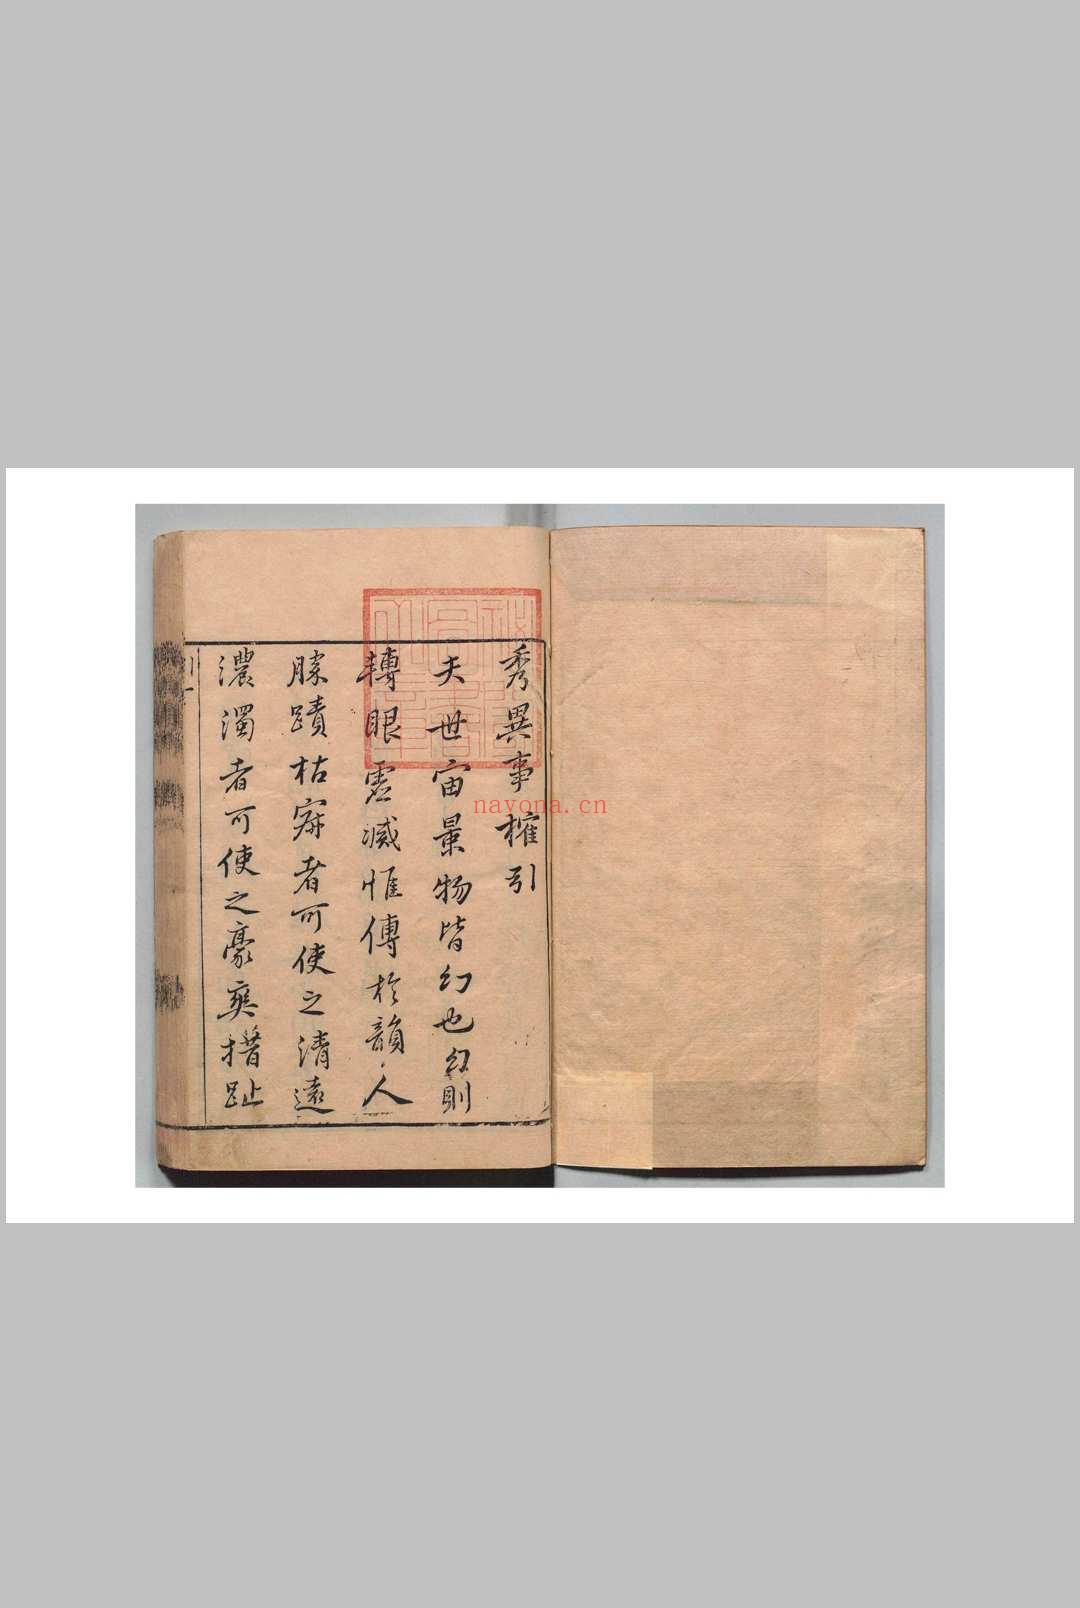 秀異事榷引
夫世宙景物皆幻也幻則
轉眼虛滅惟傳於韻人
勝蹟枯寂者可使之清遠
濃濁者可使之豪爽撍趾
navona.cn